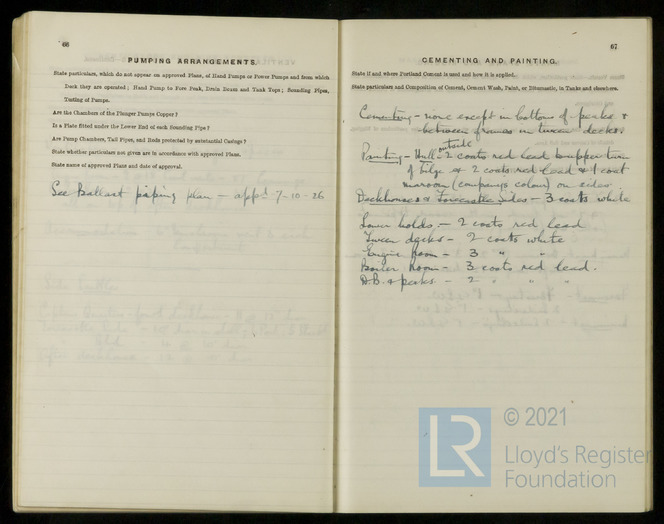 66
PUMPING ARRANGEMENTS.
State particulars, which do not appear on approved Plans, of Hand Pumps or Power Pumps and from which
Deck they are operated; Hand Pump to Fore Peak, Drain Beam and Tank Tops; Sounding Pipes,
Testing of Pumps.
Are the Chambers of the Plunger Pumps Copper?
Is a Plate fitted under the Lower End of each Sounding Pipe?
Are Pump Chambers, Tail Pipes, and Rods protected by substantial Casings?
State whether particulars not given are in accordance with approved Plans.
State name of approved Plans and date of approval.
See Ballast piping plan - appd 7-10-26
67
CEMENTING AND PAINTING.
State if and where Portland Cement is used and how it is applied.
State particulars and Composition of Cement, Cement Wash, Paint, or Bitumastic, in Tanks and elsewhere.
Cementing - none except in bottom of peaks &
between frames in tween decks.
outside
Painting - Hull - 2 coats red lead to upper turn
of bilge & 2 coats red lead & 1 coat
maroon (company's colour) on sides
Deckhouses & Forecastle sides - 3 coats white
Lower holds. - 2 coats red lead
Tween decks - 2 coats white
Engine Room - 3 " "
Boiler Room - 3 coats red lead.
D.B. & peaks - 2 " " "
LR
© 2021
Lloyd's Register
Foundation